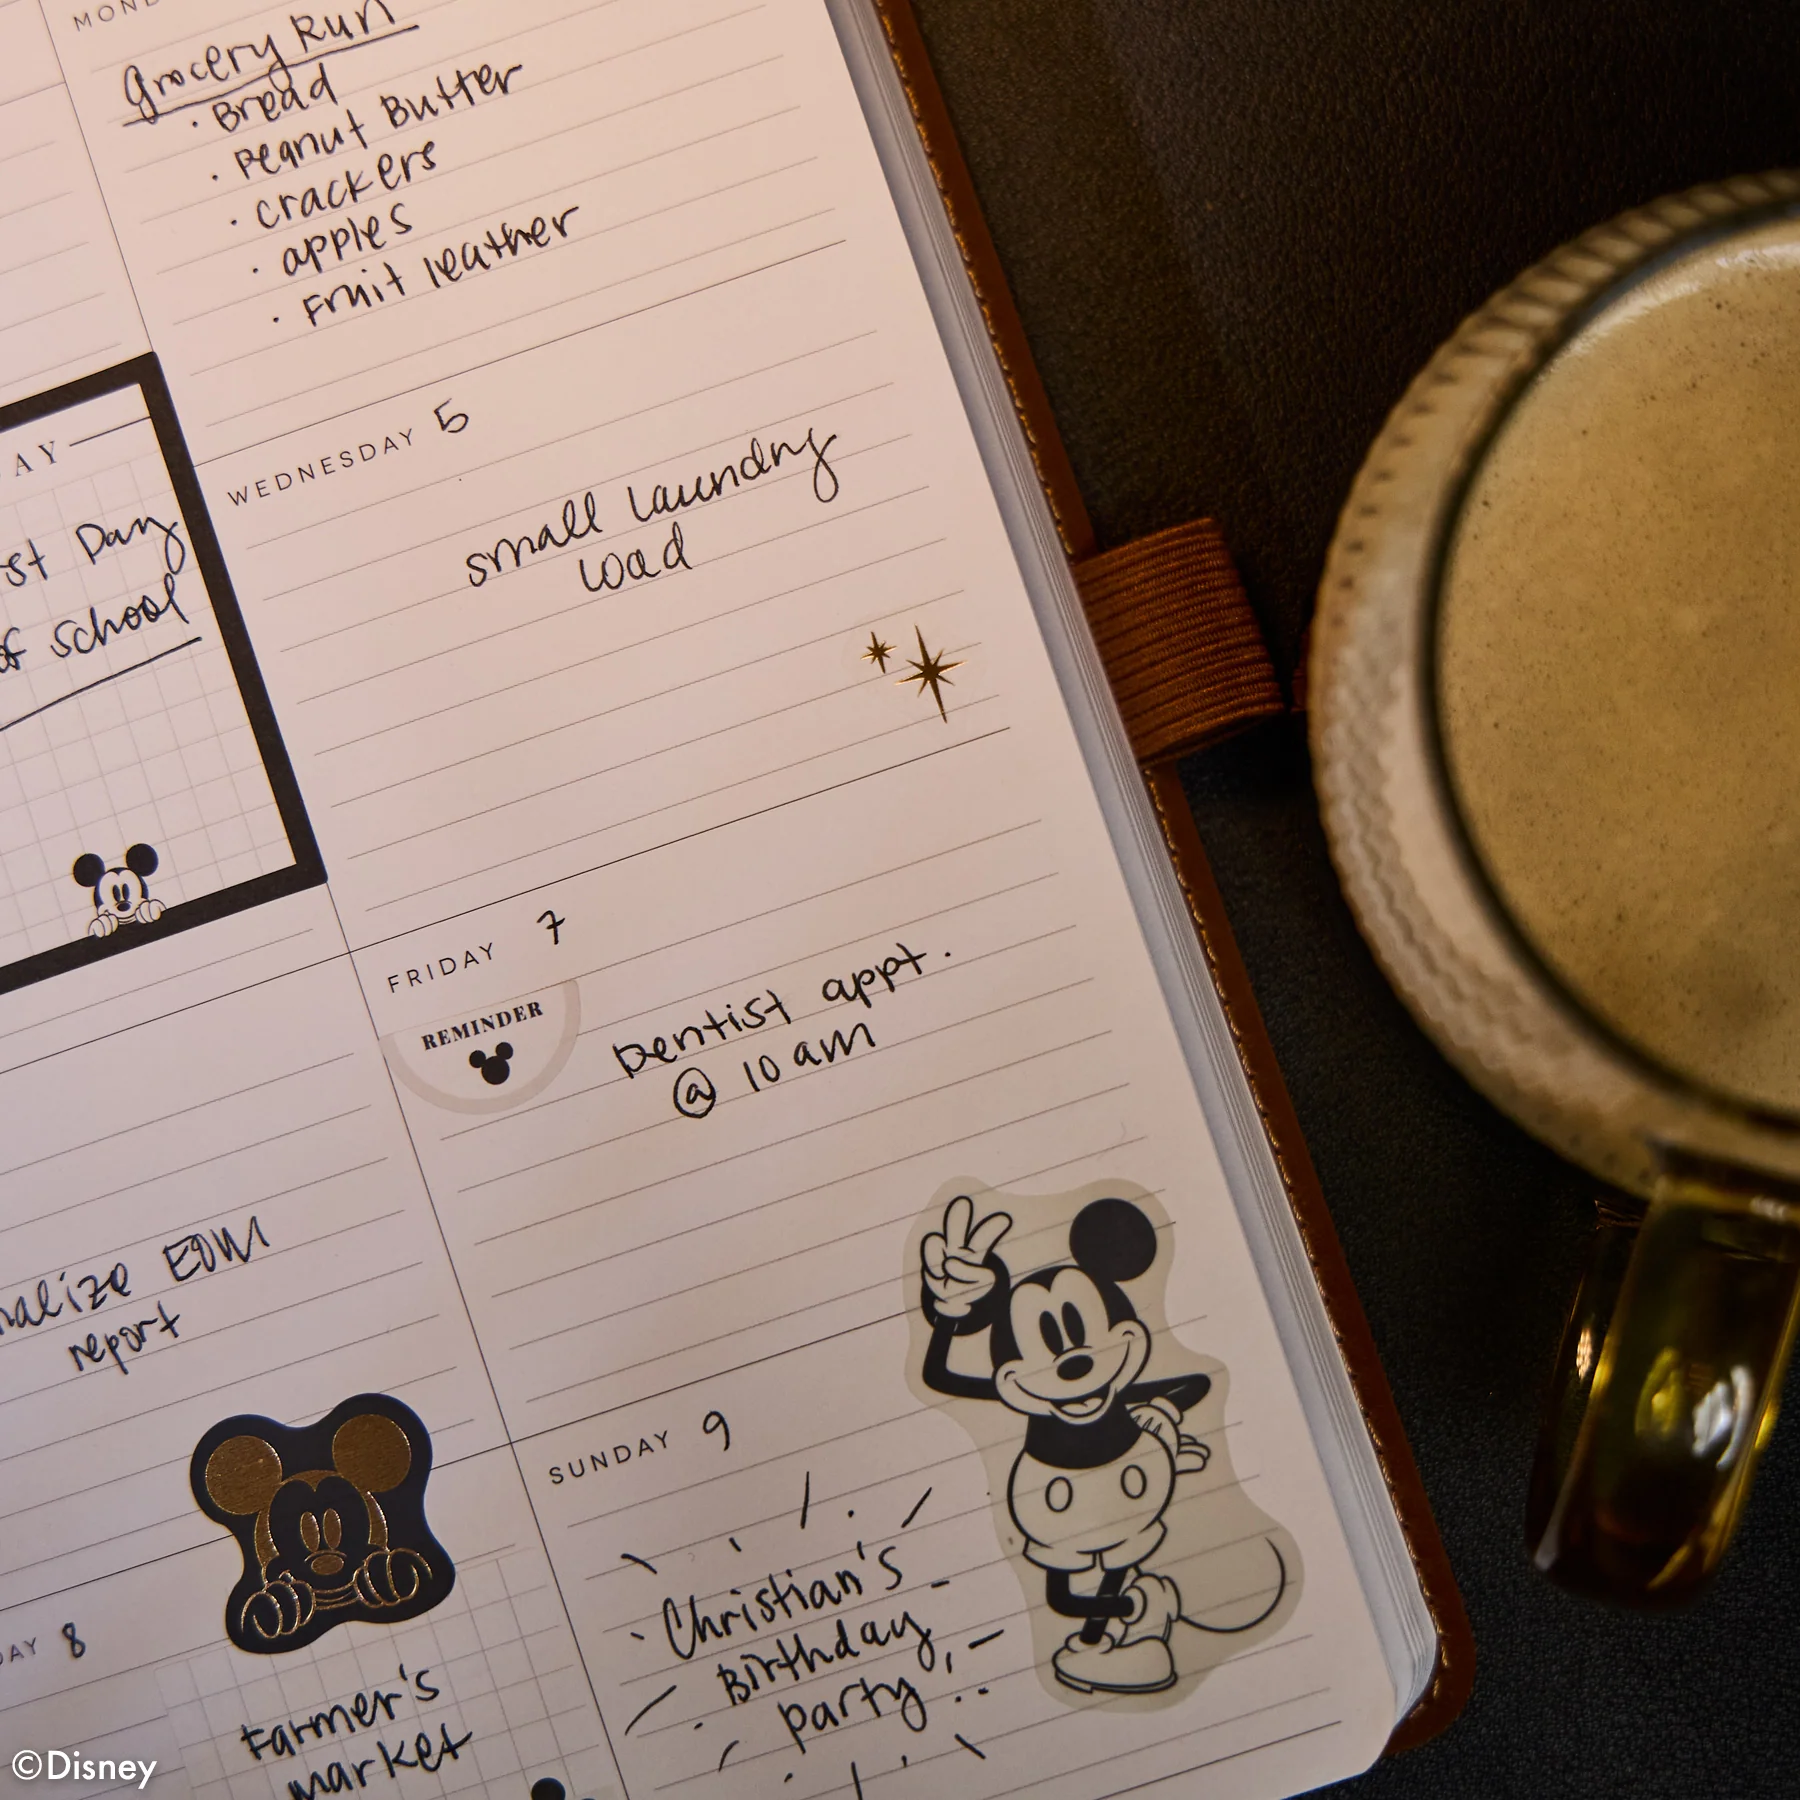 Grocery Run
· Bread
· Peanut Butter
· crackers
· apples
· Fruit leather
WEDNESDAY 5
small laundry
load
Day
of school
FRIDAY 7
REMINDER
Dentist appt.
@ 10 am
EOM
report
SUNDAY 9
Christian's
Birthday
party
8
Farmer's
market
©Disney